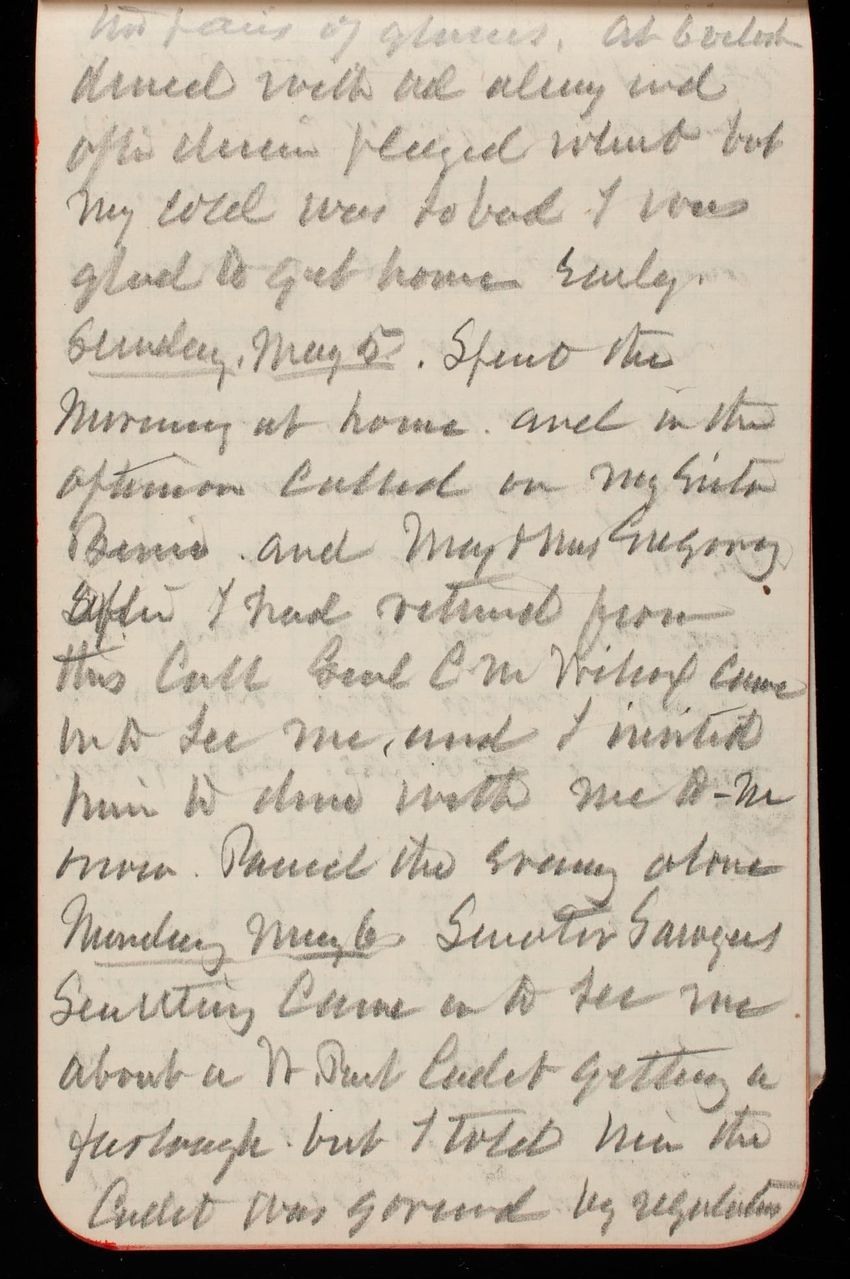 two pairs of gloves. At 6 oclock
dined with
after dinner played whist but
my cold was so bad I was
glad to get home early.
Sunday, May 5. Spent the
morning at home. and in the
afternoon called on my sister
and Maj & Mrs Gregory
After I had returned from
this call Genl C M Wilcox came
in to see me, and I invited
him to dine with me to-m
orrow. Passed the evening alone
Monday May 6 Senator Sawyers
Secretary came in to see me
about a W. Point Cadet getting a
furlough but I told him the
Cadet was governed by regulations